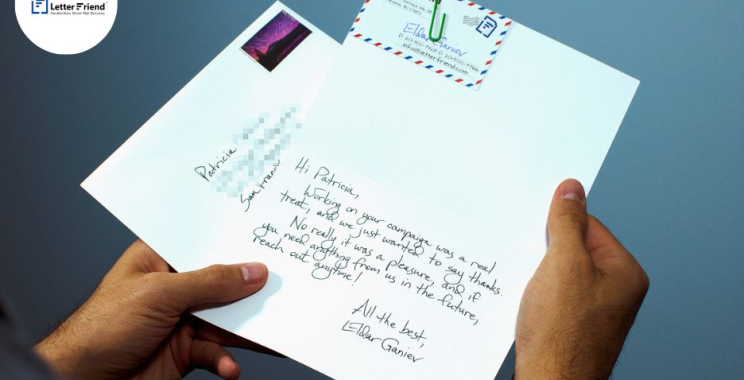 Letter Friend
Handwritten Direct Mail Services
Eldar Ganiev
info@letterfriend.com
Patricia
San Franci
Hi Patricia,
Working on your campaign was a real
treat, and we just wanted to say thanks.
No really, it was a pleasure, and if
you need anything from us in the future,
reach out anytime!
All the best,
Eldar Ganiev